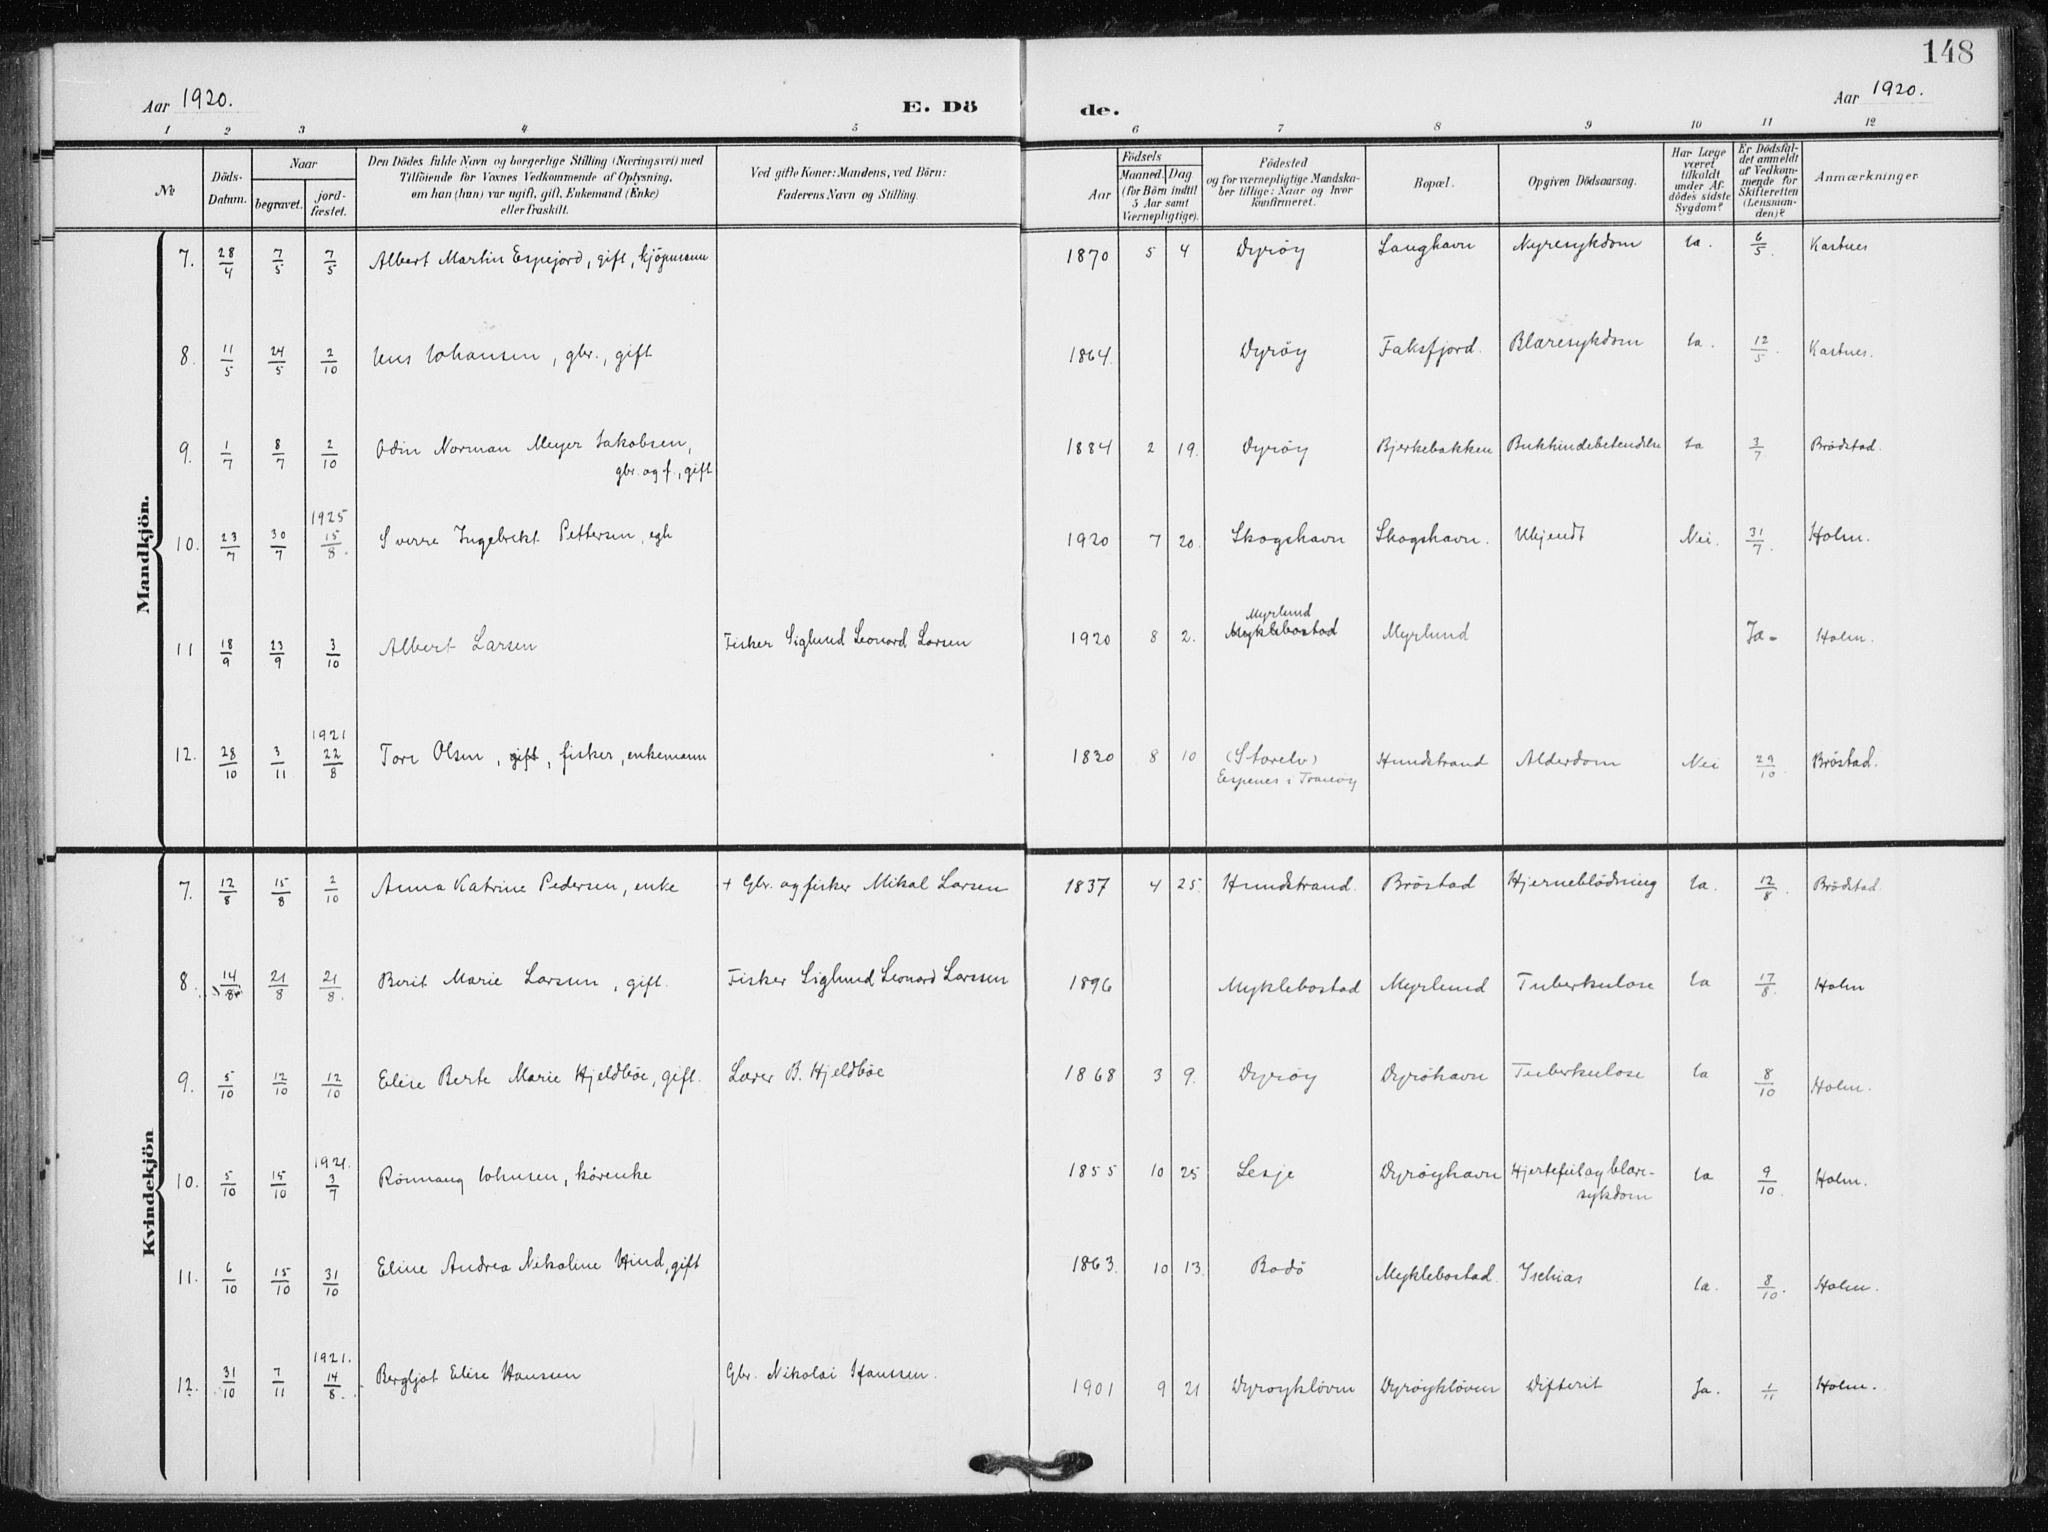 148
Aar 1920. E. Dö de. Aar 1920.
1 2 3 4 5 6 7 8 9 10 11 12
No
Döds-Datum.
Naar
begravet.
jord-fæstet.
Den Dödes fulde Navn og borgerlige Stilling (Næringsvei) med
Tilföiende for Voxnes Vedkommende af Oplysning,
om han (hun) var ugift, gift, Enkemand (Enke)
eller fraskilt.
Ved gifte Koner: Mandens, ved Börn:
Faderens Navn og Stilling.
Födsels
Aar
Maaned. Dag
(for Börn indtil
5 Aar samt
Værnepligtige).
Födested
og for værnepligtige Mandska-
ber tillige: Naar og hvor
konfirmeret.
Bopæl.
Opgiven Dödsaarsag.
Har Læge
været
tilkaldt
under Af-
dödes sidste
Sygdom?
Er Dödsfal-
det anmeldt
af Vedkom-
mende for
Skifteretten
(Lensman-
den)?
Anmærkninger
Mandkjön.
7. 28/4 7/5 7/5 Albert Martin Espejord, gift, kjöpmann 1870 5 4 Dyröy Langhavn Nyresykdom Ja. 6/5. Kastnes
8. 11/5 24/5 2/10 Jens Johansen, gbr., gift 1864. Dyröy Faksfjord. Blæresykdom Ja. 12/5. Kastnes.
9. 1/7 8/7 2/10 Odin Norman Meyer Jakobsen, 1884 2 19. Dyröy Bjerkebakken Bukhindebetendelse Ja 3/7 Brödstad.
gbr. og f., gift
1925
10. 23/7 30/7 15/8. Sverre Ingebrikt Pettersen, egh 1920 7 20. Skogshavn Skogshavn. Ukjendt Nei. 31/7. Holm.
Myrlund
11 18/9 23/9 3/10 Albert Larsen Fisker Siglund Leonard Larsen 1920 8 2. Myklebostad Myrlund Ja- Holm.
1921
12. 28/10 3/11 22/8 Tore Olsen, gift, fisker, enkemann 1830 8 10 (Storelv) Hundstrand Alderdom Nei 29/10. Bröstad.
Espenes i Tranöy
Kvindekjön
7. 12/8 15/8 2/10 Anna Katrine Pedersen, enke + Gbr. og fisker Mikal Larsen 1837 4 25. Hundstrand. Bröstad Hjerneblödning Ja. 12/8. Brödstad.
8. 14/8 21/8 21/8. Berit Marie Larsen, gift. Fisker Siglund Leonard Larssen 1896 Myklebostad Myrlund Tuberkulose Ja 17/8. Holm
9. 5/10 12/10 12/10 Elise Berte Marie Hjeldböe, gift. Lærer B. Hjeldböe 1868 3 9. Dyröy Dyröhavn Tuberkulose Ja 8/10 Holm.
1921.
10. 5/10 15/10 3/7 Rönnaug Johnsen, kårenke 1855 10 25 Lesje Dyröyhavn Hjertefeil og blære- Ja 9/10. Holm.
sykdom
11. 6/10 15/10 31/10 Eline Andrea Nikoline Hind, gift 1863. 10 13. Bodö Myklebostad. Ischias Ja. 8/10. Holm.
1921.
12. 31/10 7/11 14/8. Bergljot Elise Hanssen Gbr. Nikolai Hanssen. 1901 9 21 Dyröyklöven Dyröyklöven Difterit Ja. 1/11 Holm.